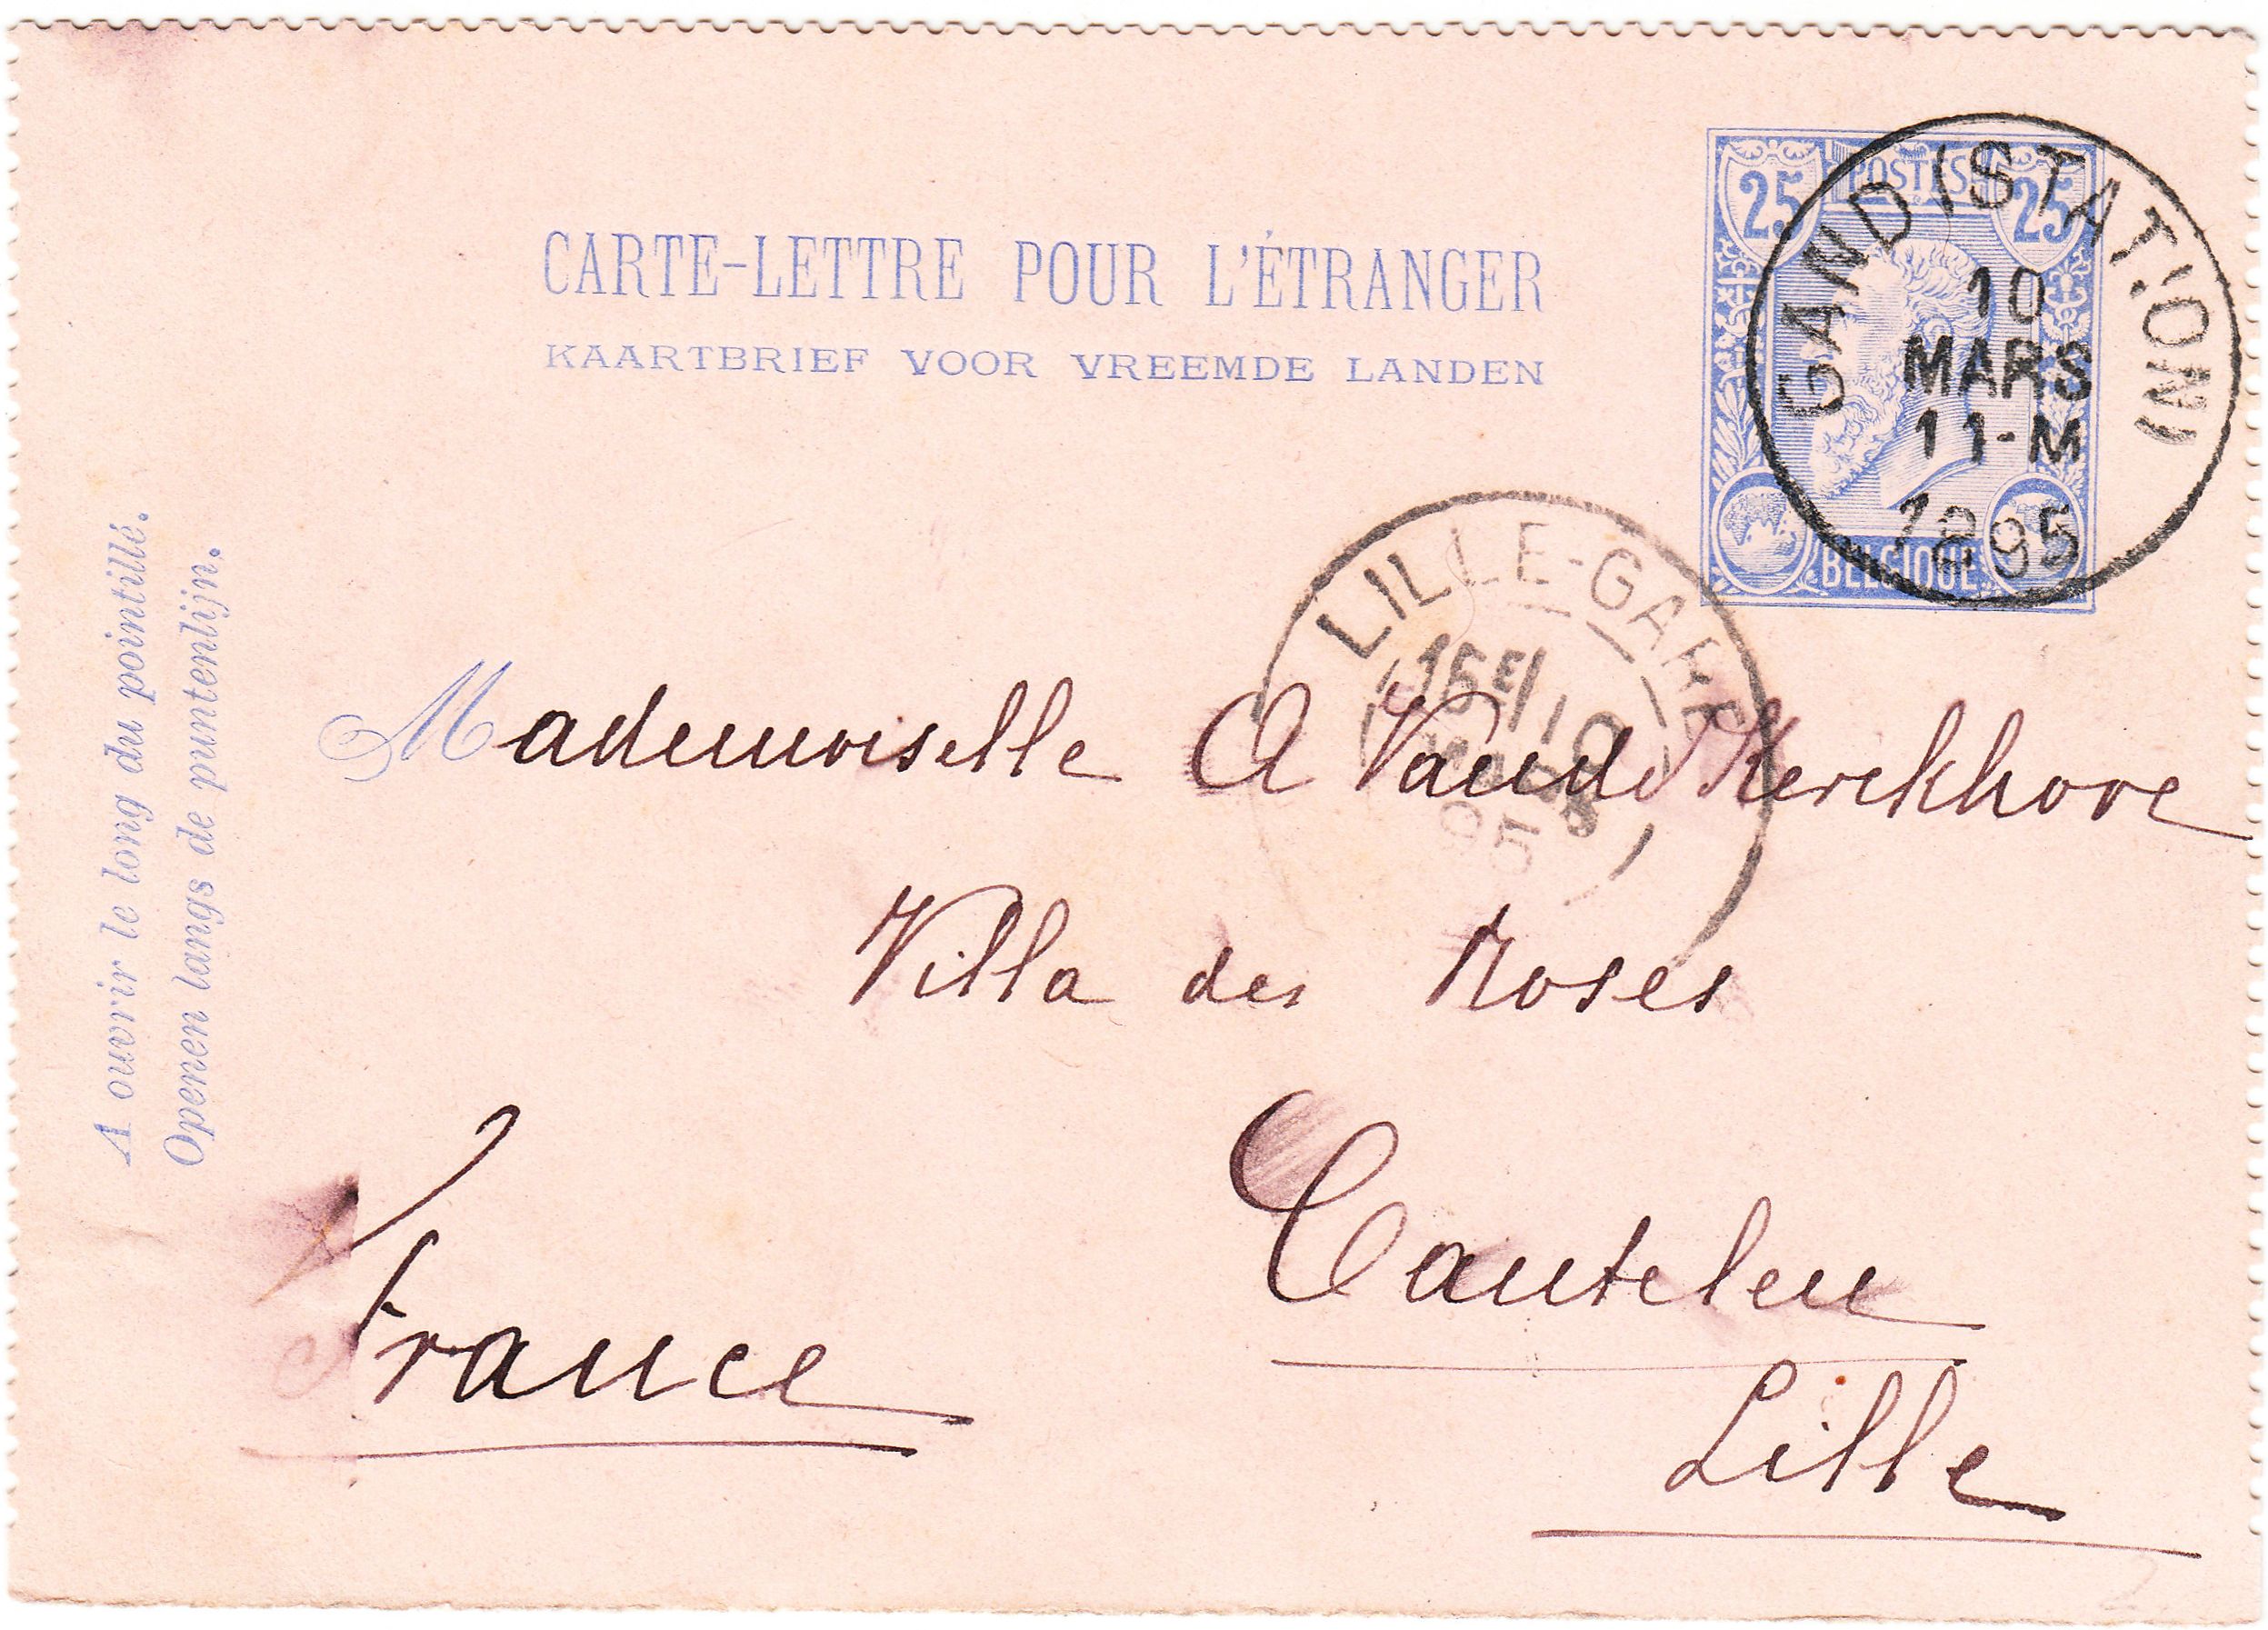 25 POSTES 25
BELGIQUE
GAND (STATION)
10
MARS
11-M
1895
CARTE-LETTRE POUR L'ÉTRANGER
KAARTBRIEF VOOR VREEMDE LANDEN
A ouvrir le long du pointillé.
Openen langs de puntenlijn.
LILLE-GARE
16E/10
MARS
95
Mademoiselle A Vande Kerckhove
Villa des Roses
Canteleu
Lille
France